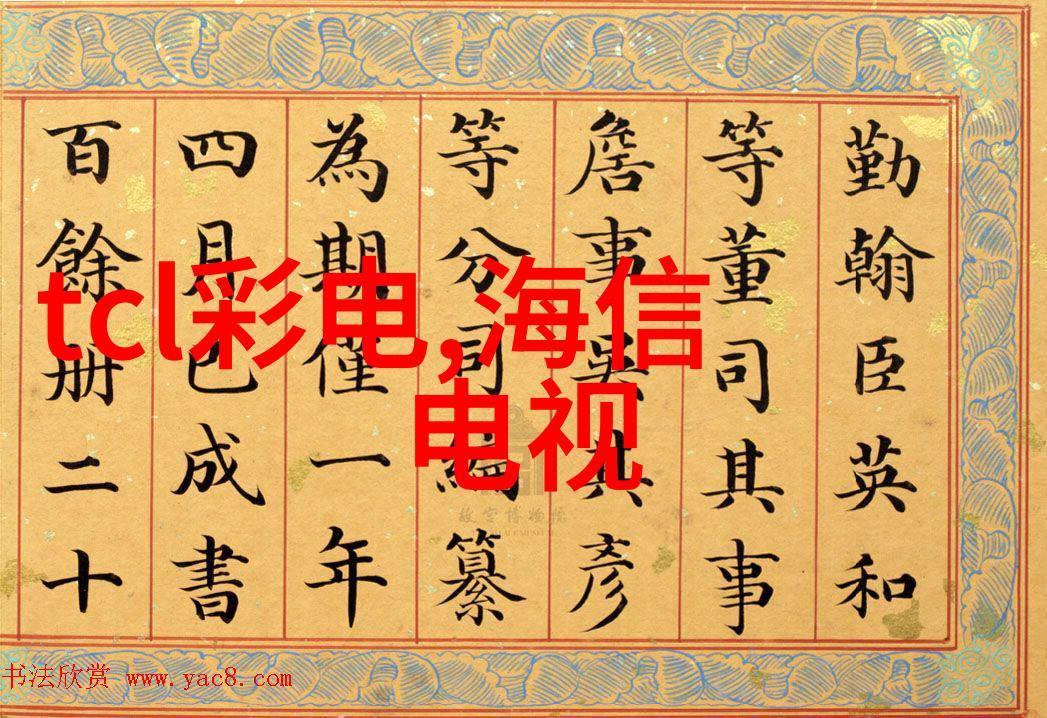 勤翰臣英和
等董司其事
詹事吳其彥
等分司編纂
為期僅一年
四月已成書
百餘册二十
tcl彩电,海信
电视
故宫博物院
书法欣赏 www.yac8.com